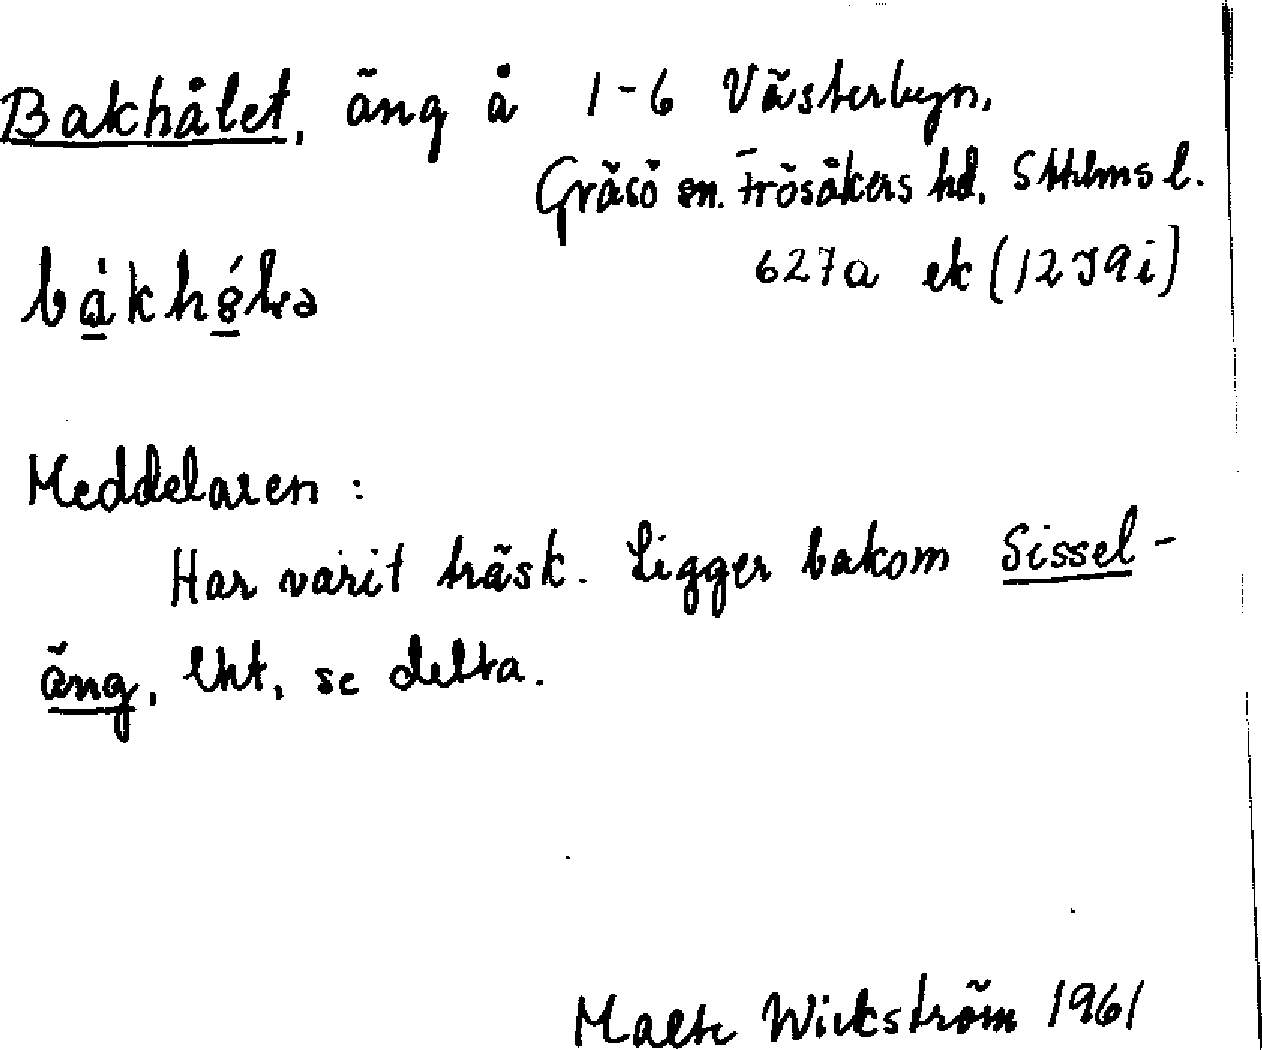 Bakhålet, äng å 1-6 Västerbyn,
Gräsö sn. Frösåkers hd. Sthlms l.
627a ek (12J9i)
Meddelaren:
Har varit träsk. Ligger bakom Sissel-
äng, Uht, se detta.
Malte Wickström 1961